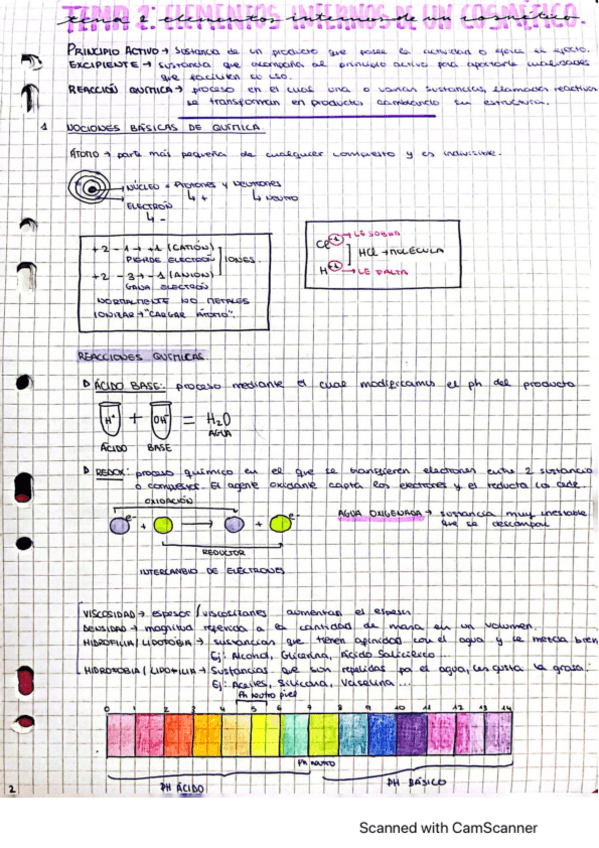 TEMA 2: ELEMENTOS INTERNOS DE UN COSMÉTICO.
PRINCIPIO ACTIVO → Sustancia de un producto que posee la actividad o ejerce su efecto.
EXCIPIENTE → sustancia que acompaña al principio activo para aportarle cualidades
que faciliten su uso.
REACCIÓN QUÍMICA → proceso en el cual una o varias sustancias, llamadas reactivos
se transforman en productos cambiando su estructura.
1 NOCIONES BÁSICAS DE QUÍMICA
ÁTOMO → parte más pequeña de cualquier compuesto y es indivisible.
NÚCLEO → Protones y NEUTRONES
ELECTRÓN ↳ + ↳ NEUTRO
↳ -
+2 -1 → +1 (CATIÓN)
PIERDE ELECTRÓN
+2 -3 → -1 (ANIÓN)
GANA ELECTRÓN
IONES.
NORMALMENTE NO METALES
IONIZAR → "CARGAR ÁTOMO".
Cl -1 → LE SOBRA
HCl → MOLÉCULA
H +1 → LE FALTA
REACCIONES QUÍMICAS
ÁCIDO BASE: proceso mediante el cual modificamos el ph del producto
H+ + OH- = H2O
AGUA
ÁCIDO BASE
REDOX: proceso químico en el que se transfieren electrones entre 2 sustancias
o compuestos. El agente oxidante capta los electrones y el reductor los cede.
OXIDACIÓN
e- + → + e-
REDUCTOR
INTERCAMBIO DE ELECTRONES
AGUA OXIGENADA → sustancia muy inestable
que se
VISCOSIDAD → espesor / viscosizantes aumentan el espesor
DENSIDAD → magnitud referida a la cantidad de masa en un volumen.
HIDROFILIA / LIPOFOBIA → sustancias que tienen afinidad con el agua y se mezcla bien
Ej: Alcohol, Glicerina, Ácido Salicílico...
HIDROFOBIA / LIPOFILIA → Sustancias que son repelidas por el agua, les gusta la grasa:
Ej: Aceites, Silicona, Vaselina...
Ph neutro piel
0 1 2 3 4 5 6 7 8 9 10 11 12 13 14
Ph NEUTRO
PH ÁCIDO
PH BÁSICO
2
Scanned with CamScanner